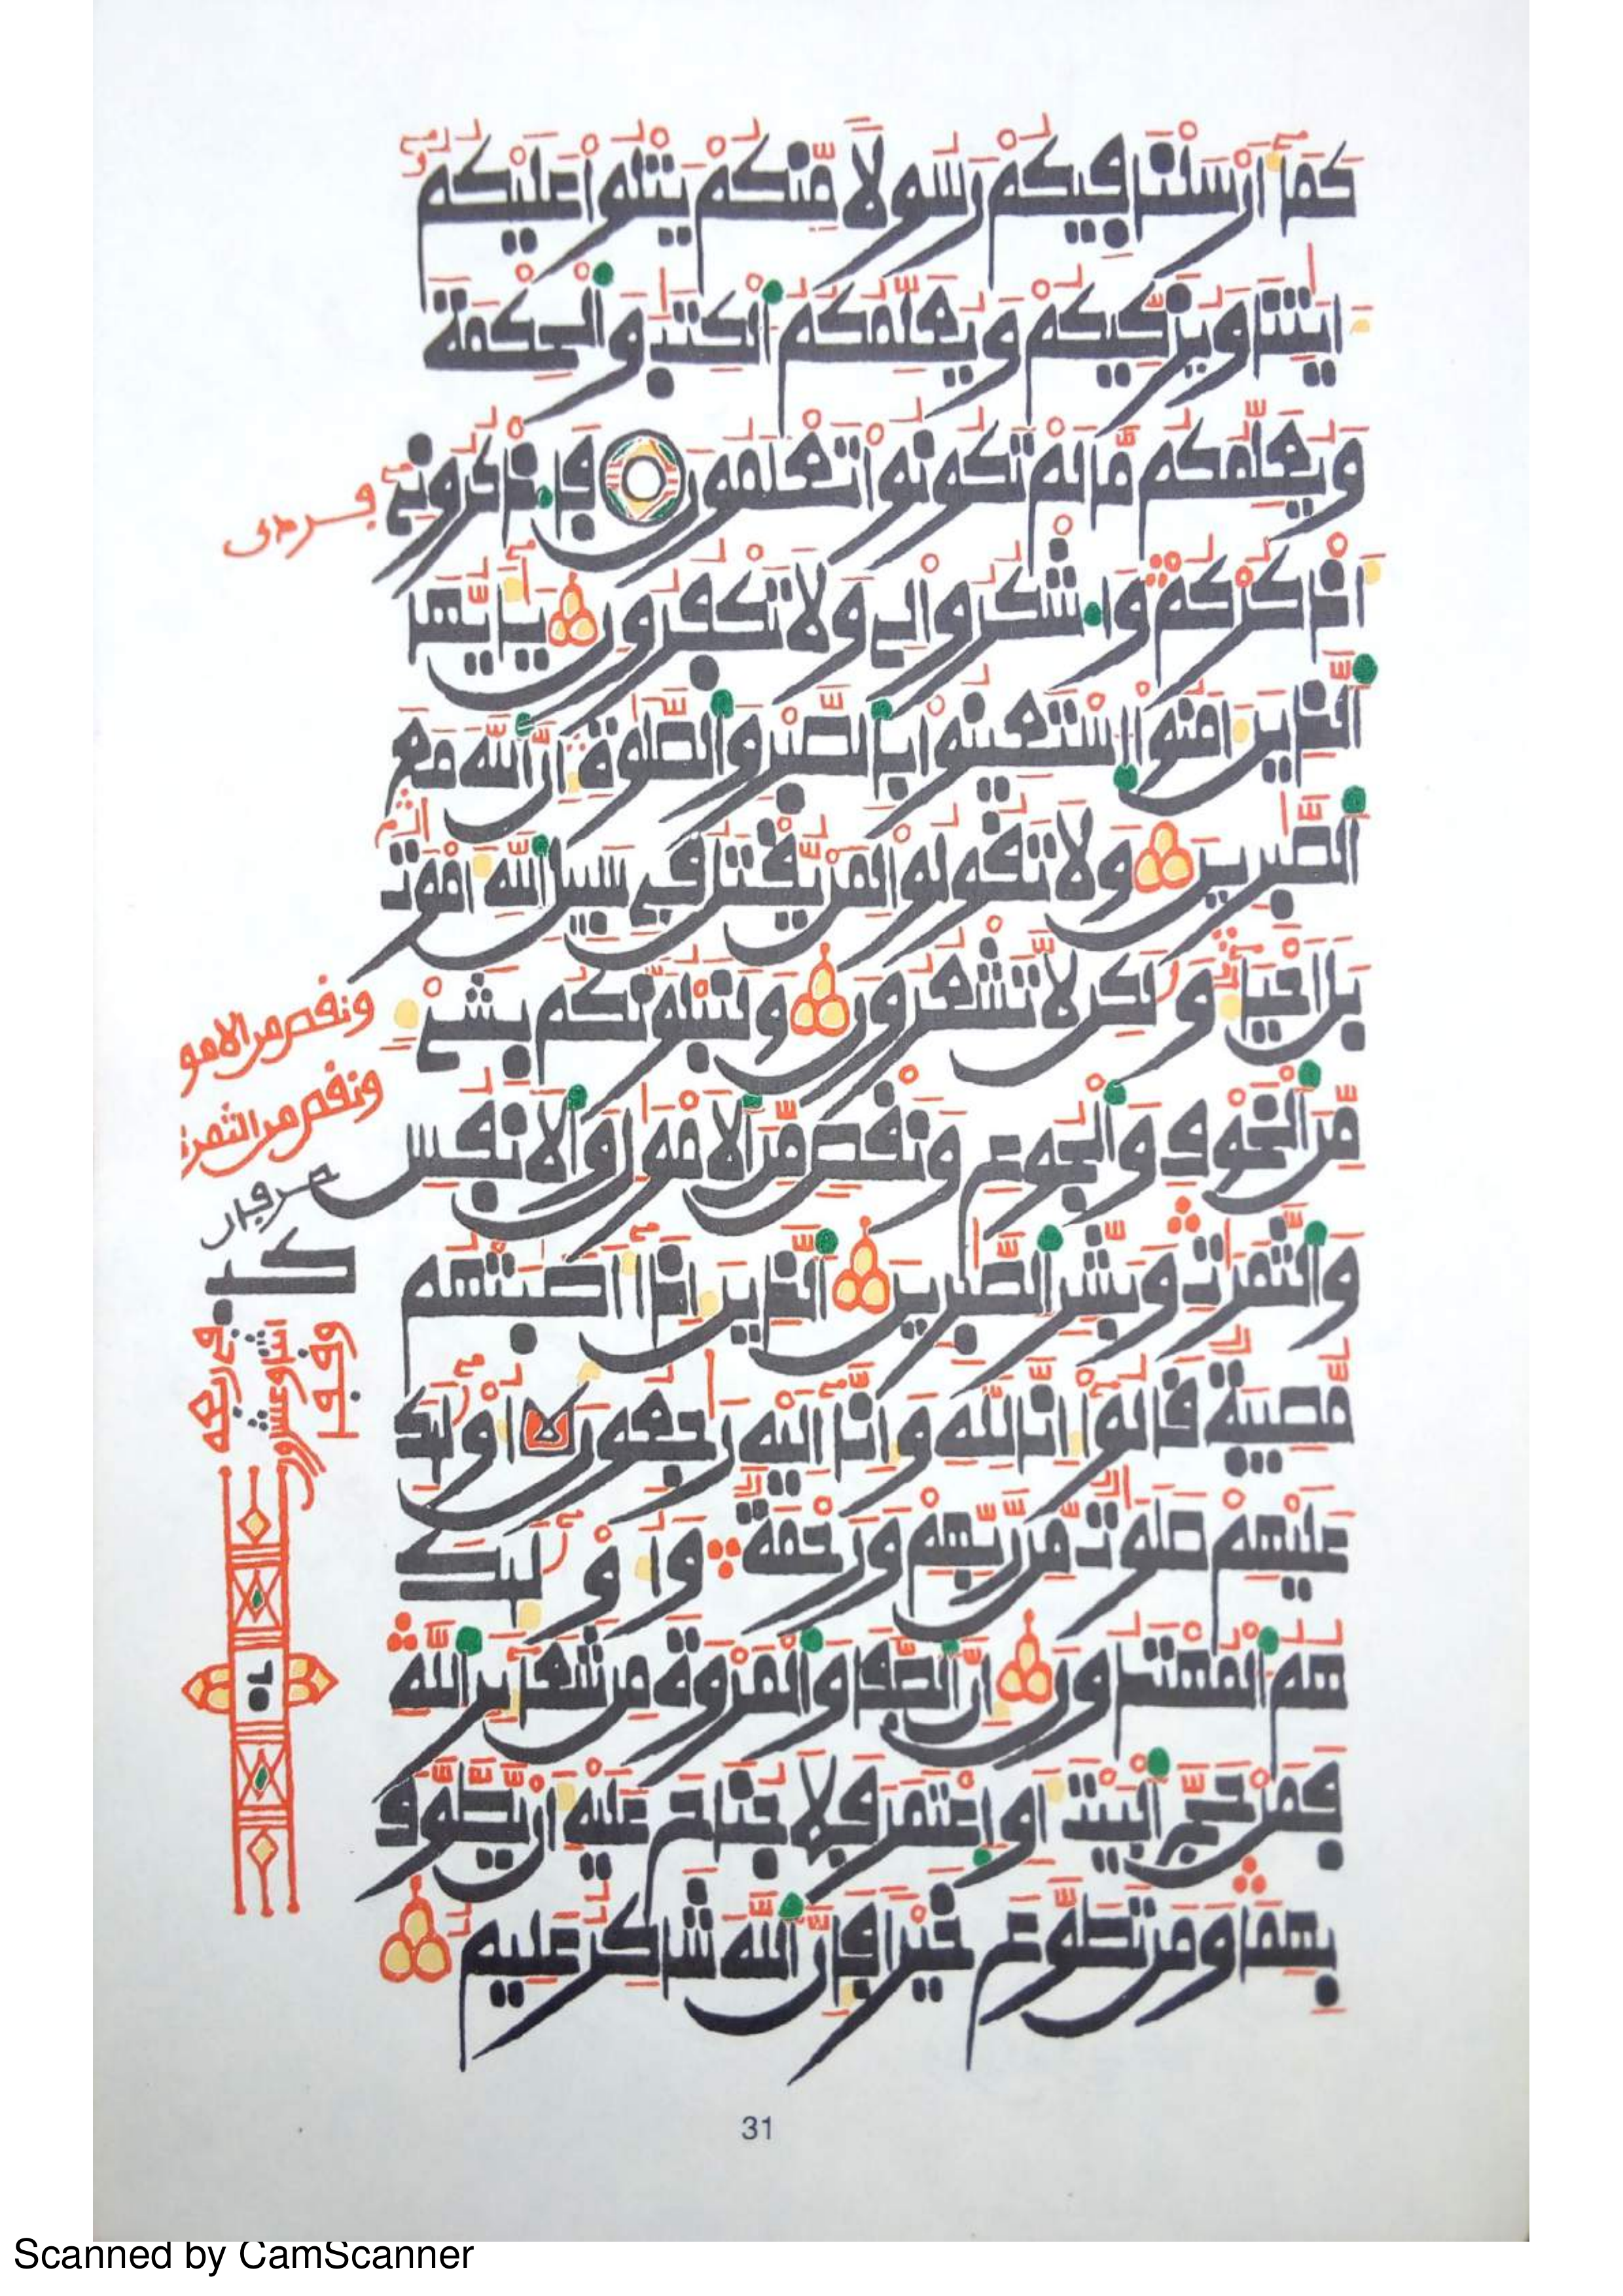 كَمَا أَرْسَلْنَا فِيكُمْ رَسُولًا مِّنكُمْ يَتْلُوا عَلَيْكُمُ
ءَايَٰتِنَا وَيُزَكِّيكُمْ وَيُعَلِّمُكُمُ ٱلْكِتَٰبَ وَٱلْحِكْمَةَ
وَيُعَلِّمُكُم مَّا لَمْ تَكُونُوا تَعْلَمُونَ فَاذْكُرُونِي
أَذْكُرْكُمْ وَاشْكُرُوا لِي وَلَا تَكْفُرُونِ يَٰأَيُّهَا
ٱلَّذِينَ ءَامَنُوا ٱسْتَعِينُوا بِٱلصَّبْرِ وَٱلصَّلَوٰةِ إِنَّ ٱللَّهَ مَعَ
ٱلصَّٰبِرِينَ وَلَا تَقُولُوا لِمَنْ يُّقْتَلُ فِي سَبِيلِ ٱللَّهِ أَمْوَٰتٌ
بَلْ أَحْيَاءٌ وَلَٰكِن لَّا تَشْعُرُونَ وَلَنَبْلُوَنَّكُم بِشَيْءٍ
مِّنَ ٱلْخَوْفِ وَٱلْجُوعِ وَنَقْصٍ مِّنَ ٱلْأَمْوَٰلِ وَٱلْأَنفُسِ
وَٱلثَّمَرَٰتِ وَبَشِّرِ ٱلصَّٰبِرِينَ ٱلَّذِينَ إِذَا أَصَٰبَتْهُم
مُّصِيبَةٌ قَالُوا إِنَّا لِلَّهِ وَإِنَّا إِلَيْهِ رَٰجِعُونَ أُوْلَٰئِكَ
عَلَيْهِمْ صَلَوَٰتٌ مِّن رَّبِّهِمْ وَرَحْمَةٌ وَأُوْلَٰئِكَ
هُمُ ٱلْمُهْتَدُونَ إِنَّ ٱلصَّفَا وَٱلْمَرْوَةَ مِن شَعَائِرِ ٱللَّهِ
فَمَنْ حَجَّ ٱلْبَيْتَ أَوِ ٱعْتَمَرَ فَلَا جُنَاحَ عَلَيْهِ أَنْ يَّطَّوَّفَ
بِهِمَا وَمَن تَطَوَّعَ خَيْرًا فَإِنَّ ٱللَّهَ شَاكِرٌ عَلِيمٌ
ونقص من الامو
ونقص من الثمرت
31
Scanned by CamScanner